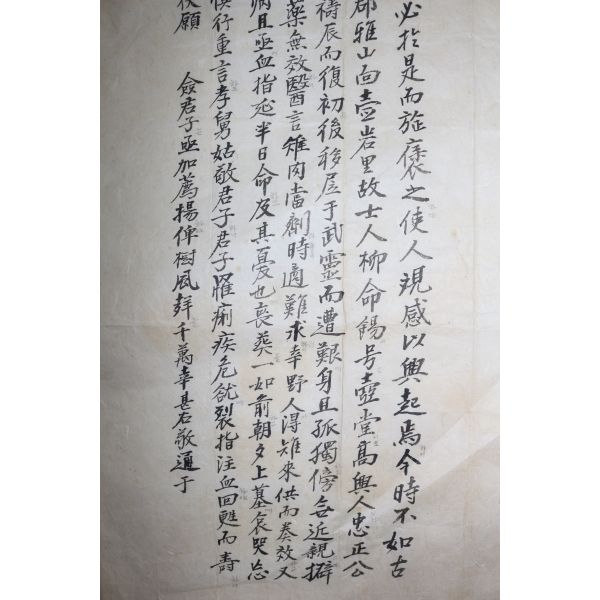 必於是而旌褒之使人覌感以興起焉今時不如古
郡雅山面壺岩里故士人柳命錫号壺堂高興人忠正公
禱辰而復初後移居于武靈而遭艱身且孤獨傍無近親擗
藥無效醫言雉肉當劑時適難求幸野人得雉來供而奏效又
病且亟血指延半日命及其憂也喪葬一如前朝夕上墓哀哭忘
俁行重言孝舅姑敬君子君子罹痢疾危欲裂指注血回甦而壽
伏願
僉君子亟加薦揚俾樹風 千萬幸甚右敬通于